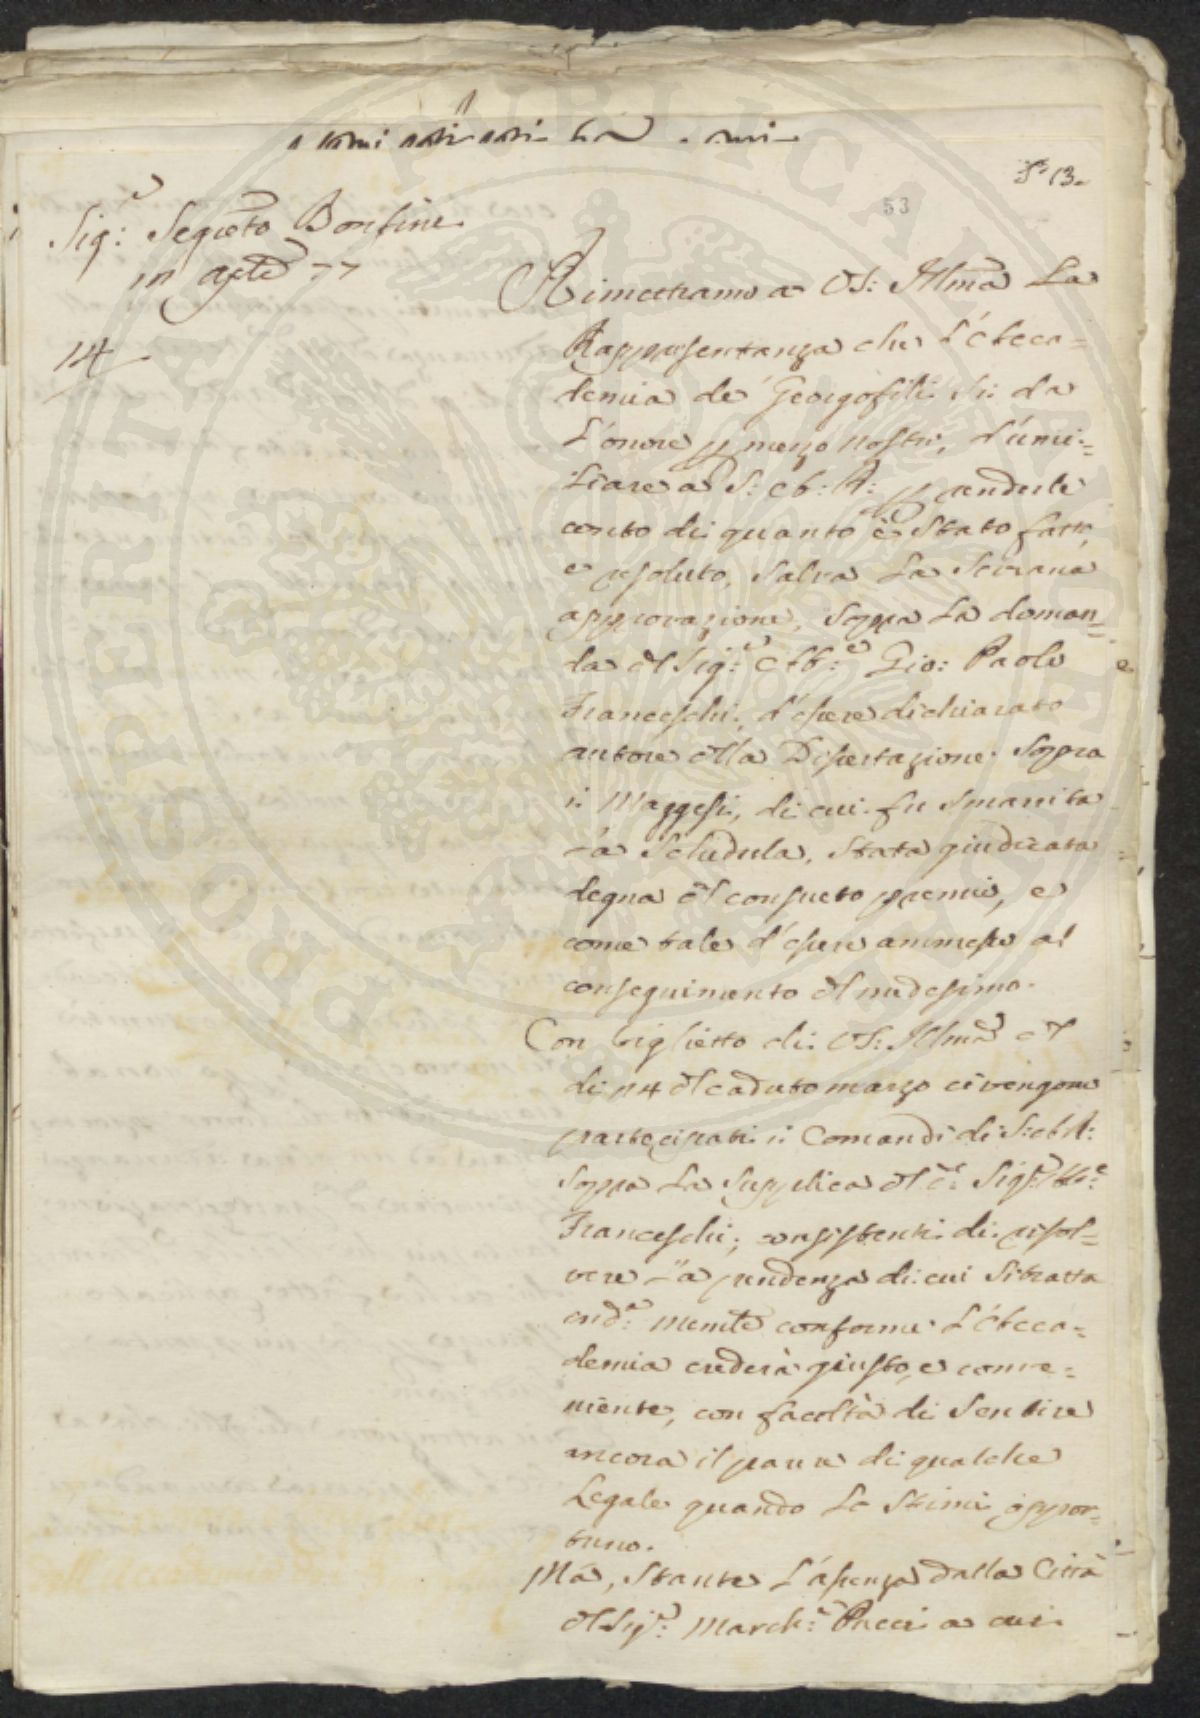 53
N.° 13.
Sig:e Segreto Bonfini
in aple 77
14
Rimettiamo a VS: Illma La
Rappresentanza che L'Acca=
demia de' Georgofili Si da
L'onore p mezzo nostro, d'umi=
liare a S: A: R: p renderle
conto di quanto è Stato fatto,
e risoluto, Salva La Sovrana
approvazione, Sopra La doman=
da dl Sig:e Ab:e Gio: Paolo
Franceschi, d'essere dichiarato
autore dlla Dissertazione Sopra
i Maggesi, di cui fu Smarrita
La Schedula, Stata giudicata
degna dl consueto premio, e
come tale d'essere ammesso al
conseguimento dl medesimo.
Con biglietto di VS: Illma dl
di 14 dl caduto marzo ci vengono
partecipati i Comandi di S: A R:
Sopra La Supplica dl d:o Sig:e Ab:e
Franceschi, consistenti di risol=
vere La pendenza di cui Si tratta
ind: mente conforme L'Acca=
demia crederà giusto, e conve=
niente, con facoltà di Sentire
ancora il parere di qualche
Legale quando Lo Stimi oppor=
tuno.
Ma, Stante L'assenza dalla Città
dl Sig:e March:e Pucci a cui
PROSPERITATI PUBLICAE AUGENDAE